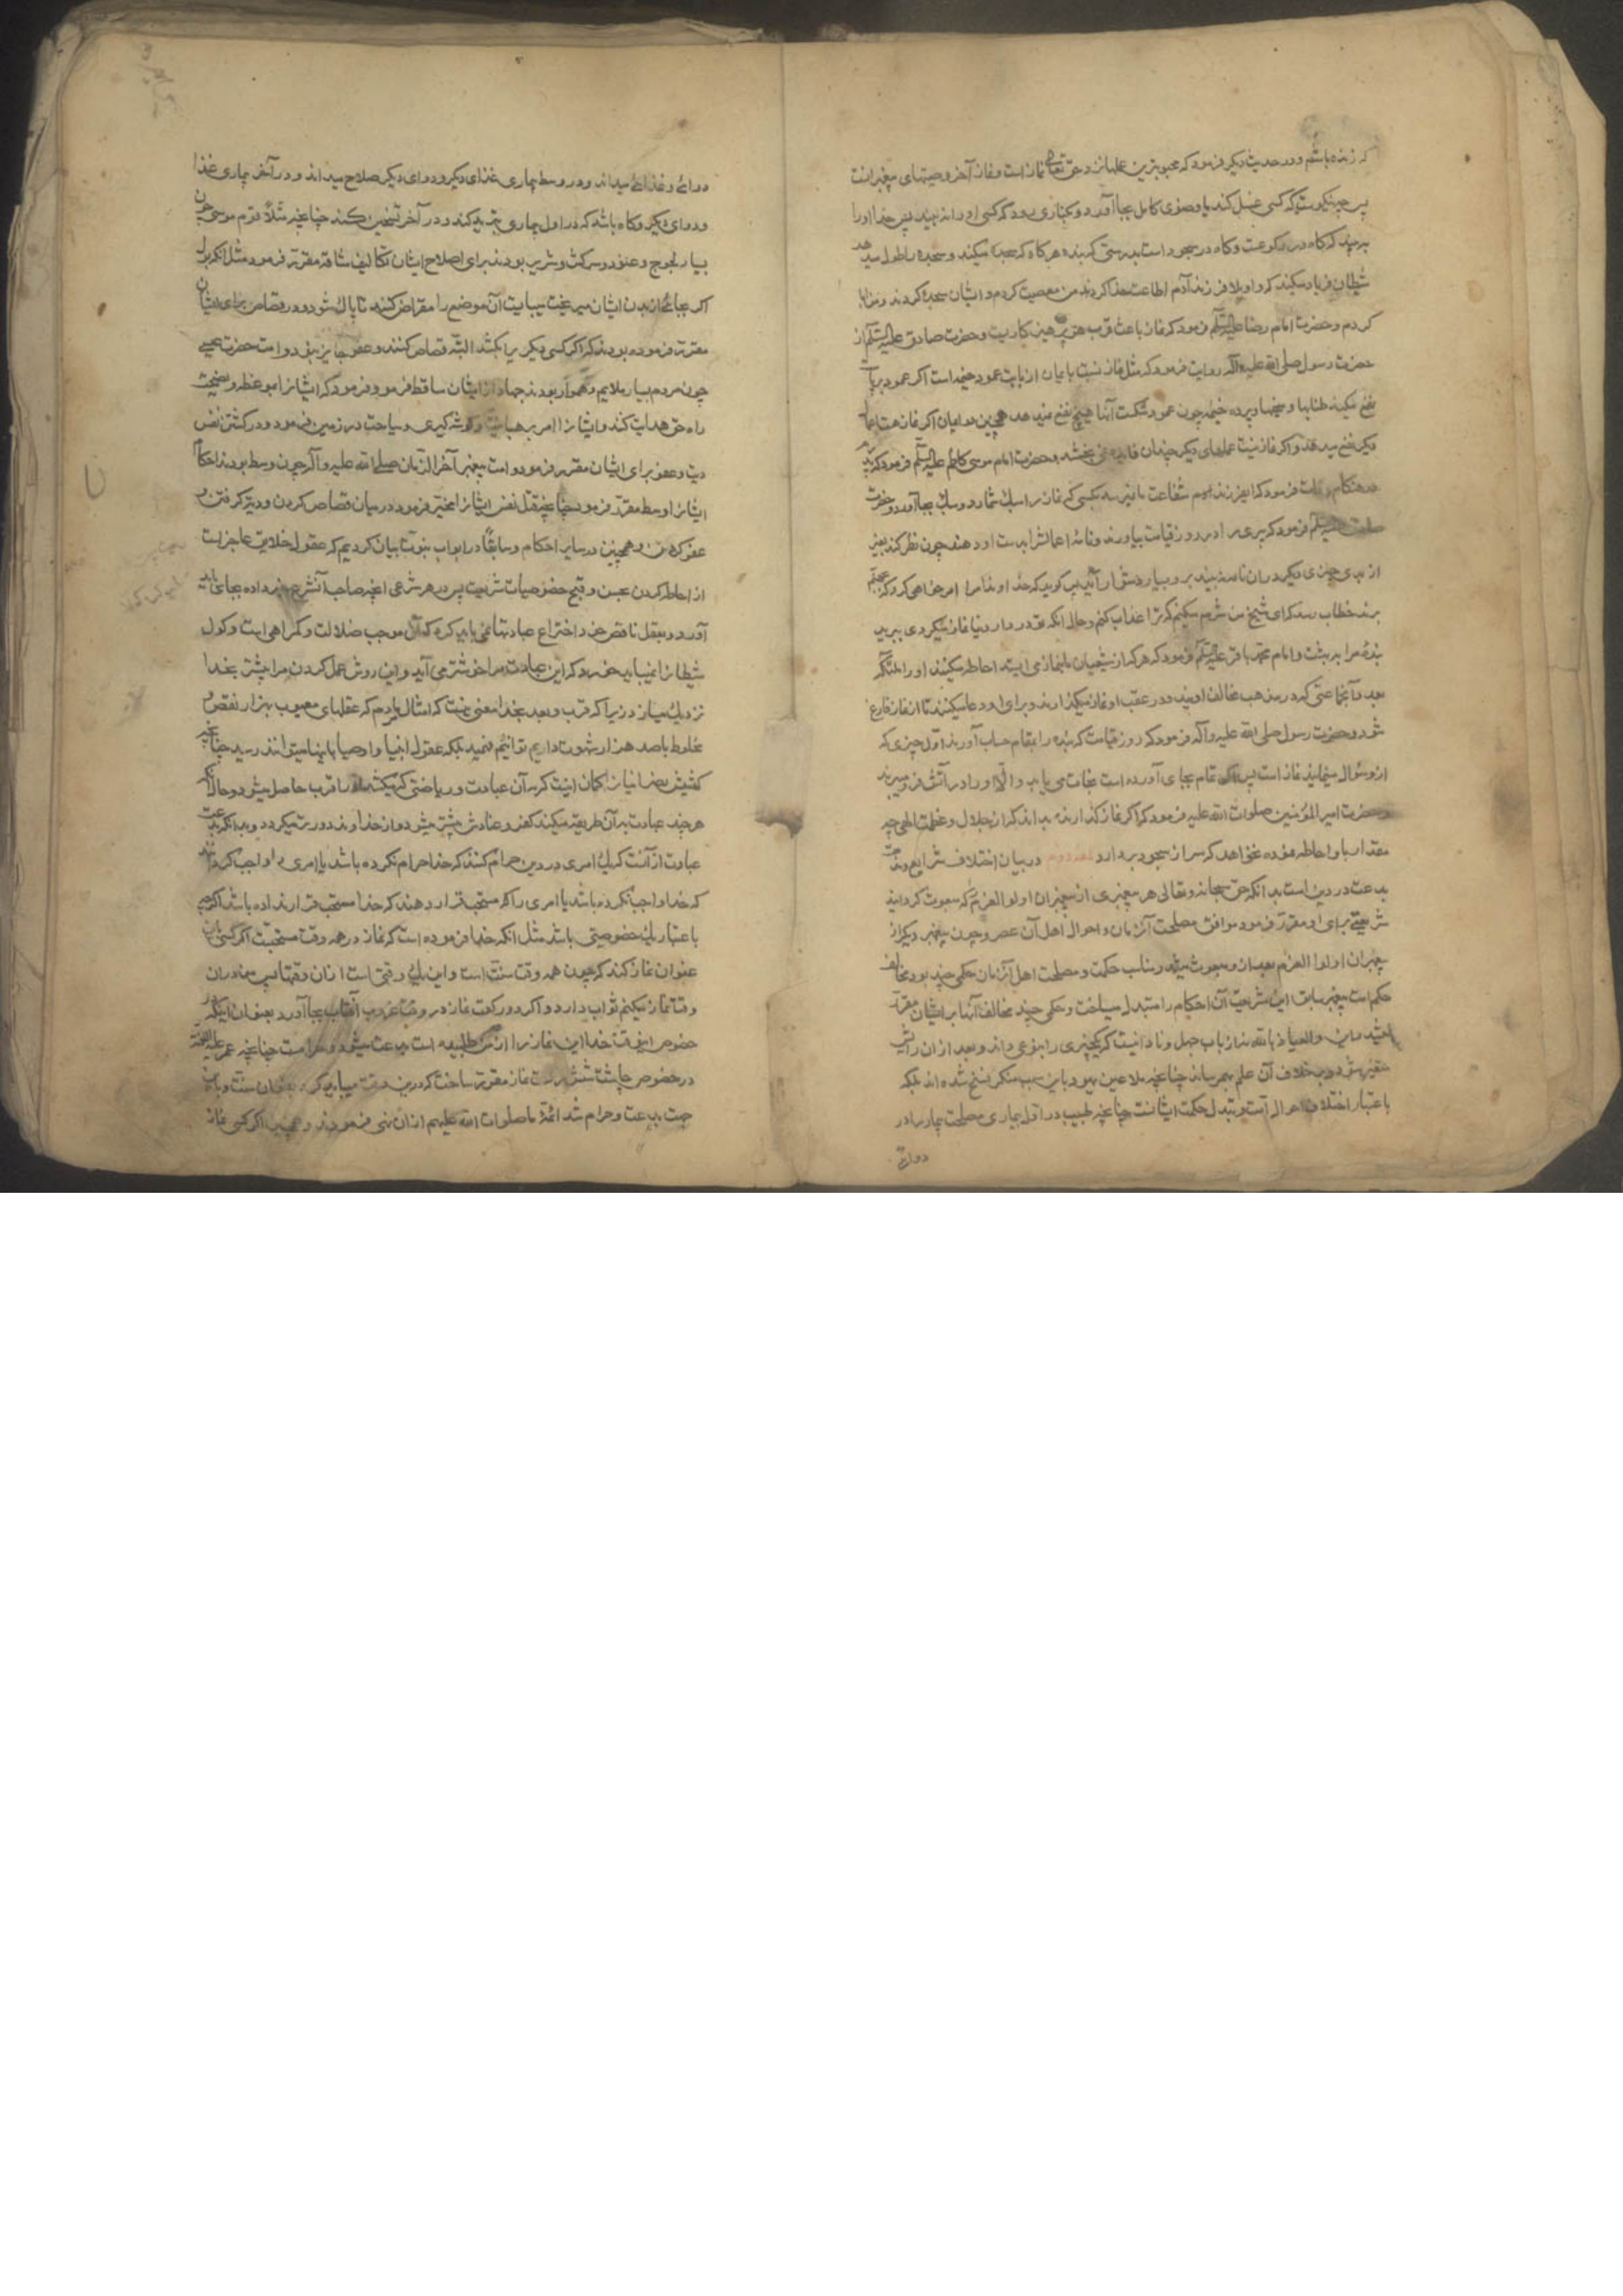 که زنده باشم و در حدیث دیگر فرمود که محبوبترین عملها نزد حق تعالی نماز است و نماز آخر وصیتهای پیغمبرانست
پس چه نیکوست که کسی غسل کند یا وضوی کامل بجا آورد و بکناری رود که کسی او را نه بیند پس خدا او را
به بیند که گاه در رکوعست و گاه در سجود است بدرستی که بنده هرگاه که سجده میکند و سجده را طول میدهد
شیطان فریاد میکند که واویلا فرزند آدم اطاعت خدا کردند من معصیت کردم و ایشان سجده کردند و من ابا
کردم و حضرت امام رضا علیه السلم فرمود که نماز باعث قرب هر پرهیزکاریست و حضرت صادق علیه السلم از
حضرت رسول صلی الله علیه و آله روایت فرمود که مثل نماز نسبت بایمان از بابت عمود خیمه است اگر عمود برپاست
نفع میکند طنابها و میخها و پرده خیمه چون عمود شکست آنها هیچ نفع نمیدهد همچنین در ایمان اگر نماز هست عملهای
دیگر نفع میدهد و اگر نماز نیست عملهای دیگر چندان فایده نمی بخشد و حضرت امام موسی کاظم علیه السلم فرمود که پدرم
در هنگام وفات فرمود که ای فرزند شفاعت ما نمیرسد بکسی که نماز را سبک شمارد و سبک بجا آورد و حضرت
علیه السلم فرمود که پیری را در روز قیامت بیاورند و نامه اعمالش را بدست او دهند چون نظر کند بغیر
از بدی چیزی دیگر در آن نامه نه بیند بر او بسیار دشوار آید پس گوید که خداوندا مرا امر خواهی کرد که بجهنم
برند خطاب رسد که ای شیخ من شرم میکنم که ترا عذاب کنم و حال آنکه تو در دار دنیا نماز میکردی ببرید
بنده مرا به بهشت و امام محمد باقر علیه السلم فرمود که هرگاه از شیعیان ما بنماز می ایستد احاطه میکنند او را ملائکه
بعدد آنجماعتی که در مذهب مخالف اویند و در عقب او نماز میگذارند و برای او دعا میکنند تا از نماز فارغ
شود و حضرت رسول صلی الله علیه و آله فرمود که روز قیامت که بنده را بمقام حساب آورند اول چیزی که
از و سؤال مینمایند نماز است پس اگر تمام بجای آورده است نجات می یابد و الا او را در آتش فرو میبرند
و حضرت امیر المؤمنین صلوات الله علیه فرمود که اگر نماز گذارنده بداند که از جلال و عظمت الهی چه
مقدار باو احاطه نموده نخواهد که سر از سجود بردارد در بیان اختلاف شرایع و مذمت
بدعت در دین است بدانکه حق سبحانه و تعالی هر پیغمبری از پیغمبران اولو العزم که مبعوث گردانید
شریعتی برای او مقرر فرمود موافق مصلحت آن زمان و احوال اهل آن عصر و چون پیغمبر دیگر از
پیغمبران اولوا العزم بعد از او مبعوث میشد و مناسب حکمت و مصلحت اهل آن زمان حکمی چند بود مخالف
حکم امت پیغمبر سابق این شریعت آن احکام را مبتدل میساخت و حکمی چند مخالف آنها بر ایشان مقرر
میشد و این والعیاذ بالله نه از باب جهل و نادانیست که یکچیزی را بنوعی داند و بعد از آن رائیش
متغیر شود و بخلاف آن علم بهم رساند چنانچه ملاعین یهود باین سبب منکر نسخ شده اند بلکه
باعتبار اختلاف احوال امت و تبدل حکمت ایشانست چنانچه طبیب در اول بیماری مصلحت بیمار را در
دوائی
دوائی و غذائی میداند و در وسط بیماری غذای دیگر و دوای دیگر صلاح میداند و در آخر بیماری غذا
و دوای دیگر و گاه باشد که در اول بیماری تبرید کند و در آخر تسخین کند چنانچه مثلا قوم موسی چون
بسیار لجوج و عنود و سرکش و شریر بودند برای اصلاح ایشان تکالیف شاقه مقرر فرمود مثل آنکه بول
اگر بجائی از بدن ایشان میریخت میبایست آن موضع را مقراض کنند تا پاک شود و در قصاص برای ایشان
مقرر فرموده بودند که اگر کسی دیگر یرا بکشد البته قصاص کنند و عفو جایز نبود و امت حضرت عیسی
چون مردم بسیار ملایم و هموار بودند جهاد از ایشان ساقط فرمود و فرمود که ایشانرا بموعظه و نصیحت
راه حق هدایت کند و ایشانرا امر برهبانیت و گوشه گیری و سیاحت در زمین فرمود و در کشتن نفس
دیت و عفو برای ایشان مقرر فرمود و امت پیغمبر آخر الزمان صلی الله علیه و آله چون وسط بودند احکام
ایشانرا وسط مقرر فرمود چنانچه قتل نفس ایشانرا مخیر فرمود در میان قصاص کردن و دیت گرفتن و
عفو کردن و همچنین در سایر احکام و سابقا در ابواب نبوت بیان کردیم که عقول خلایق عاجز است
از احاطه کردن بحسن و قبح خصوصیات شریعت پس در هر شرعی آنچه صاحب آنشرع خبر داده بجای باید
آورد و بعقل ناقص خود اختراع عبادتها نمی باید کرد که آن موجب ضلالت و گمراهی است و گول
شیطانرا نمیباید خورد که این عبادت مرا خوشتر می آید و این روش عمل کردن مرا بیشتر بخدا
نزدیک میسازد زیرا که قرب و بعد بخدا معنی نیست که امثال ما مردم که عقلهای معیوب بهزار نقص و
مخلوط باصد هزار شهوت داریم توانیم فهمید بلکه عقول انبیا و اوصیا باینها میتوانند رسید چنانچه
کشیش نصرانیانرا گمان اینست که به آن عبادت و ریاضتی که میکشد او را قرب حاصل میشود و حال آنکه
هرچند عبادت به آن طریقه میکند کفر و عنادش بیشتر میشود و از خداوند دورتر میگردد و بدانکه بدعت
عبارت از آنست که یک امری در دین حرام کنند که خدا حرام نکرده باشد یا امری را واجب گردانند
که خدا واجب نکرده باشد یا امری را که مستحب قرار دهند که خدا مستحب قرار نداده باشد اگرچه
باعتبار یک خصوصیتی باشد مثل آنکه خدا فرموده است که نماز در همه وقت مستحبست اگر کسی باین
عنوان نماز کند که چون همه وقت سنت است و این یک وقتی است از آن وقتها پس من در آن
وقت نماز میکنم ثواب دارد و اگر دو رکعت نماز در وقت غروب آفتاب بجا آورد بعنوان اینکه در
خصوص اینوقت خدا این نماز را از من طلبیده است بدعت میشود و حرامست چنانچه عمر علیه اللعنة
در خصوص چاشت شش رکعت نماز مقرر ساخت که درین وقت میباید کرد بعنوان سنت و باین
جهت بدعت و حرام شد ائمه ما صلوات الله علیهم از آن نهی فرمودند و همچنین اگر کسی نماز